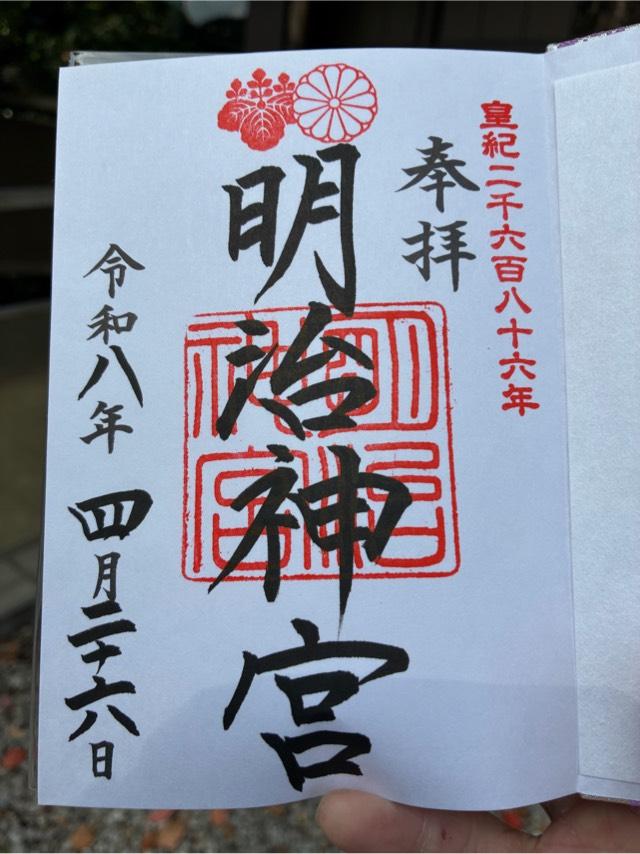 皇紀二千六百八十六年
奉拝
明治神宮
明治神宮
令和八年
四月二十六日